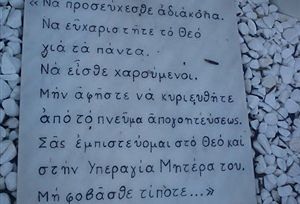 «Νὰ προσεύχεσθε ἀδιάκοπα.
Νὰ εὐχαριστῆτε τὸ Θεό
γιὰ τὰ πάντα.
Νὰ εἶσθε χαρούμενοι.
Μὴν ἀφῆστε νὰ κυριευθῆτε
ἀπὸ τὸ πνεῦμα ἀπογοητεύσεως.
Σᾶς ἐμπιστεύομαι στὸ Θεὸ καὶ
στὴν Ὑπεραγία Μητέρα του.
Μὴ φοβᾶσθε τίποτε...»